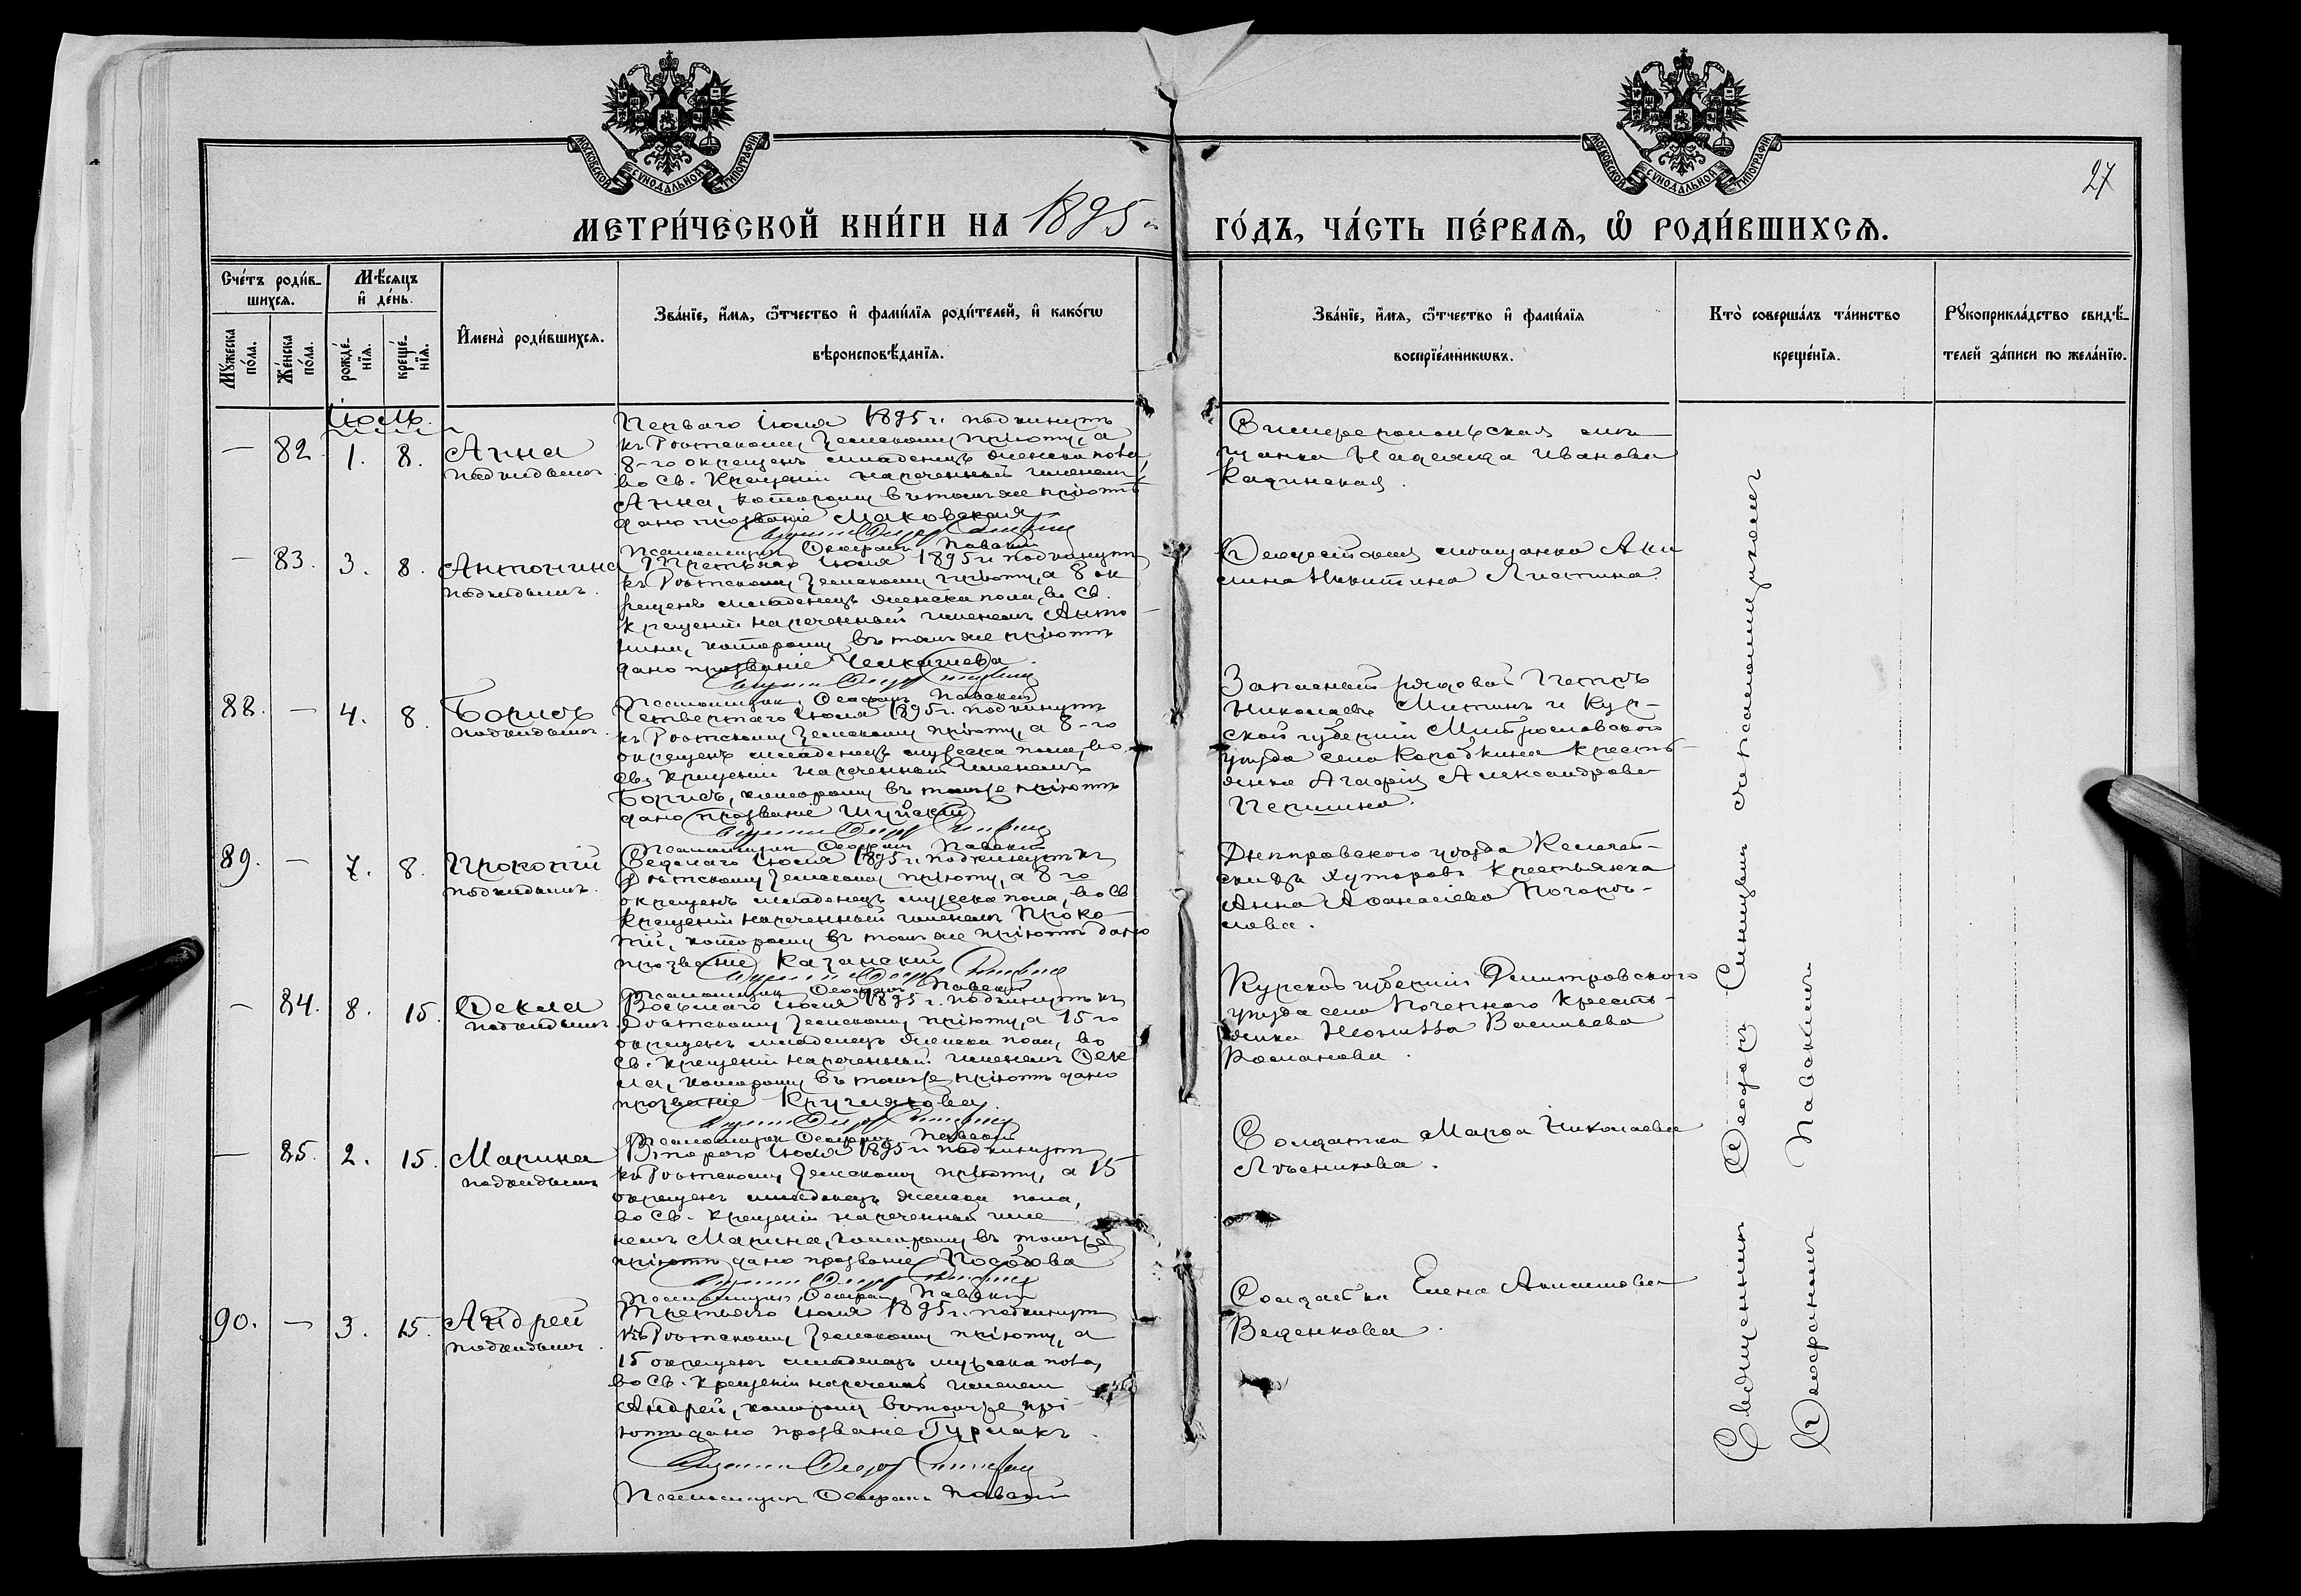 МОСКОВСКОЙ СѴНОДАЛЬНОЙ ТИПОГРАФІИ
МОСКОВСКОЙ СѴНОДАЛЬНОЙ ТИПОГРАФІИ
27
МЕТРИ́ЧЕСКОЙ КНИ́ГИ НА 1895 ГО́ДЪ, ЧА́СТЬ ПЕ́РВАЯ, Ѡ҆ РОДИ́ВШИХСЯ.
Сче́тъ роди́в-
шихся.
Мꙋ́жеска по́ла.
Же́нска по́ла.
Мѣ́сяцъ
и҆ де́нь.
рожде́-нїя.
креще́-нїя.
И҆мена̀ роди́вшихся.
Зва́нїе, и҆́мя, ѻ҆́тчество и҆ фами́лїя роди́телей, и҆ како́гѡ
вѣроисповѣ́данїя.
Зва́нїе, и҆́мя, ѻ҆́тчество и҆ фами́лїя
воспрїе́мникѡвъ.
Кто̀ соверша́лъ та́инство
креще́нїя.
Рꙋкоприкла́дство свидѣ́-
телей за́писи по жела́нїю.
Іюль
— 82. 1. 8. Анна
подкидышъ.
Перваго Іюля 1895 г. подкинутъ
къ Ромтскому Земскому пріюту, а
8-го окрещенъ младенецъ женска пола,
во Св. Крещеніи нареченный именемъ
Анна, которому въ томъ же пріютѣ
дано прозваніе Маковская
Псаломщикъ Ѳеофанъ Павскій
Симферопольская мѣ-
щанка Надежда Иванова
Качинская.
— 83. 3. 8. Антонина
подкидышъ.
Третьяго Іюля 1895 г. подкинутъ
Земскому пріюту, а 8 ок
рещенъ младенецъ женска пола, во Св.
Крещеніи нареченный именемъ Анто
нина, которому въ томъ же пріютѣ
дано прозваніе
Псаломщикъ Ѳеофанъ Павскій
Ѳеодосійская мѣщанка Аки
лина Никитина
88. — 4. 8. Борисъ
подкидышъ.
Четвертаго Іюля 1895 г. подкинутъ
Земскому пріюту, а 8-го
окрещенъ младенецъ мужеска пола, во
Св. Крещеніи нареченный именемъ
Борисъ, которому въ томъ же пріютѣ
дано прозваніе Шуйскій
Псаломщикъ Ѳеофанъ Павскій
Запасный рядовой Петръ
Николаевъ Митинъ и Кур-
ской губерніи
уѣзда села Коробкина кресть-
янка Агафія Александрова
89. — 7. 8. Прокопій
подкидышъ.
Седьмаго Іюля 1895 г. подкинутъ къ
Земскому пріюту, а 8 го
окрещенъ младенецъ мужеска пола, во Св
Крещеніи нареченный именемъ Проко
пій, которому въ томъ же пріютѣ дано
прозваніе Казанскій
Псаломщикъ Ѳеофанъ Павскій
Днепровского уѣзда
хуторовъ крестьянка
Анна Аѳанасіева
— 84. 8. 15. Ѳекла
подкидышъ.
Восьмаго Іюля 1895 г. подкинутъ къ
Земскому пріюту, а 15 го
окрещенъ младенецъ женска пола, во
Св. Крещеніи нареченный именемъ Ѳек
ла, которому въ томъ же пріютѣ дано
прозваніе Круглякова
Псаломщикъ Ѳеофанъ Павскій
Курской губерніи Дмитровского
уѣзда села кресть-
янка Васильева
Романова.
— 85. 2. 15. Марина
подкидышъ
Второго Іюля 1895 г. подкинутъ
Земскому пріюту, а 15
окрещенъ младенецъ женска пола,
во Св. Крещеніи нареченный име
немъ Марина, которому въ томъ же
пріютѣ дано прозваніе
Псаломщикъ Ѳеофанъ Павскій
Солдатка Марѳа Николаева
90. — 3. 15. Андрей
подкидышъ.
Третьяго Іюля 1895 г. подкинутъ
Земскому пріюту, а
15 окрещенъ младенецъ мужеска пола,
во Св. Крещеніи нареченъ именемъ
Андрей, которому въ томъ же прі-
ютѣ дано прозваніе Гурмакъ.
Псаломщикъ Ѳеофанъ Павскій
Солдатка Елена Акимова
Веденкова.
Священникъ Ѳеодоръ Синицынъ съ псаломщикомъ
Ѳеофаномъ Павскимъ